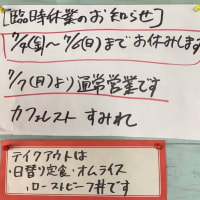 [臨時休業のお知らせ]
7/4(金)〜7/6(日)までお休みします
7/7(月)より通常営業です
カフェレスト すみれ
テイクアウトは
・日替り定食・オムライス
・ローストビーフ丼です